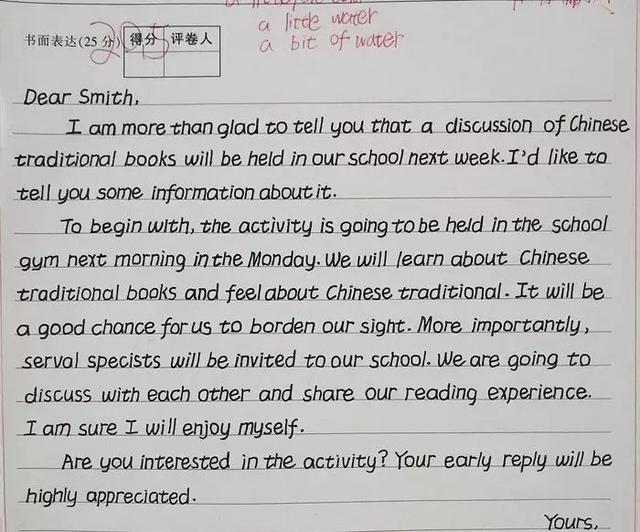 a little water
a bit of water
书面表达(25分) 得分 评卷人
Dear Smith,
I am more than glad to tell you that a discussion of Chinese
traditional books will be held in our school next week. I'd like to
tell you some information about it.
To begin with, the activity is going to be held in the school
gym next morning in the Monday. We will learn about Chinese
traditional books and feel about Chinese traditional. It will be
a good chance for us to borden our sight. More importantly,
serval specists will be invited to our school. We are going to
discuss with each other and share our reading experience.
I am sure I will enjoy myself.
Are you interested in the activity? Your early reply will be
highly appreciated.
Yours,